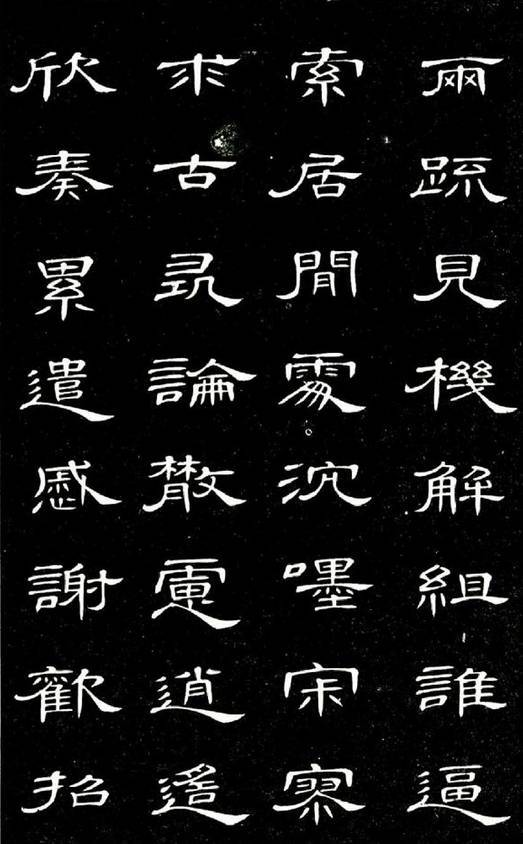 兩疏見機解組誰逼
索居閒處沉嘿寂寥
求古尋論散慮逍遙
欣奏累遣慼謝歡招